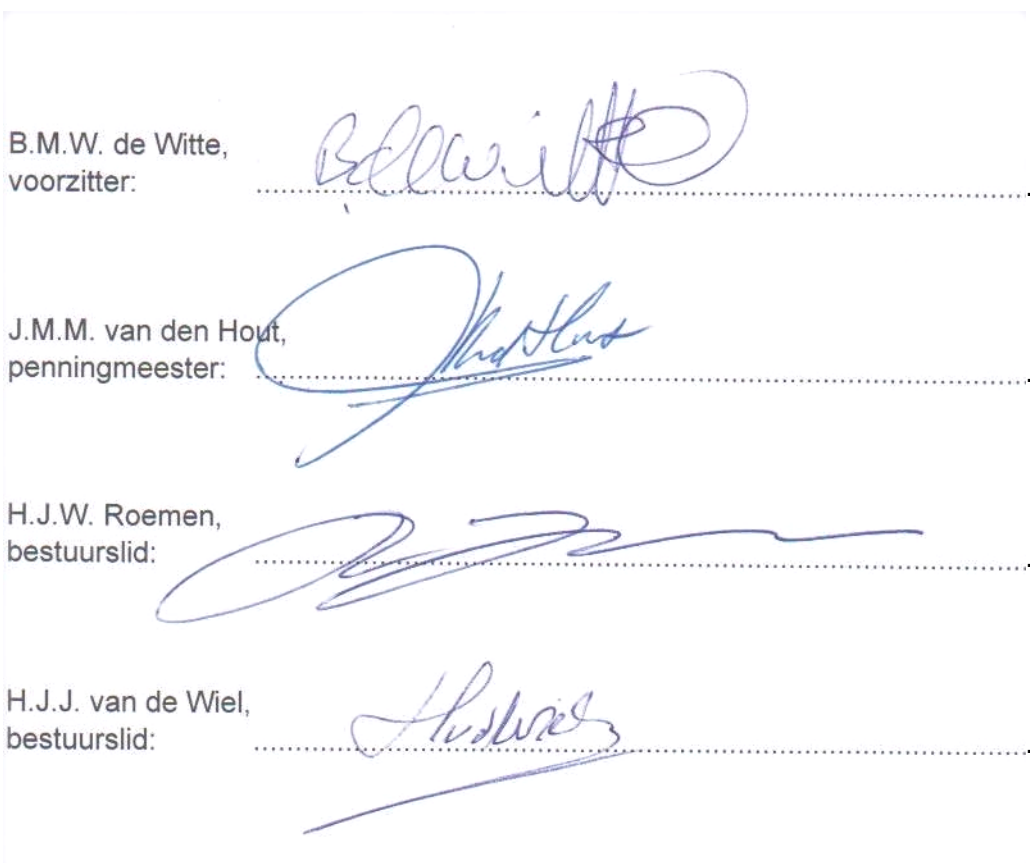 B.M.W. de Witte,
voorzitter:
J.M.M. van den Hout,
penningmeester:
H.J.W. Roemen,
bestuurslid:
H.J.J. van de Wiel,
bestuurslid: